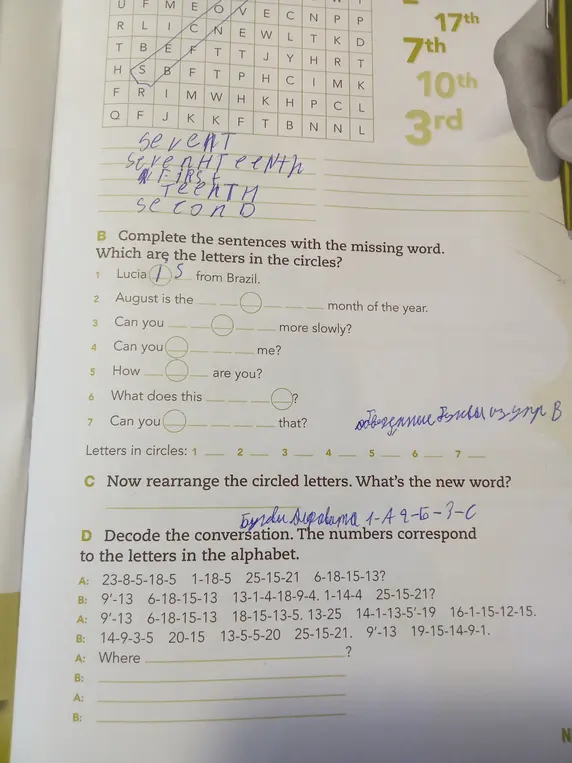 U F M E O V E C N P P
R L I C N E W L T K D
T B E F T T J Y H R T
H S B F T P H C I M K
F R I M W H K H P C L
Q F J K K F T B N N L
17th
7th
10th
3rd
SevenT
SevenHTeenth
FIRST
TeenTH
Second
B Complete the sentences with the missing word.
Which are the letters in the circles?
1 Lucia I S from Brazil.
2 August is the __ __ __ __ __ __ month of the year.
3 Can you __ __ __ __ __ more slowly?
4 Can you __ __ __ __ me?
5 How __ __ __ are you?
6 What does this __ __ __ __?
7 Can you __ __ __ __ __ that?
обведенные буквы из упр В
Letters in circles: 1 __ 2 __ 3 __ 4 __ 5 __ 6 __ 7 __
C Now rearrange the circled letters. What's the new word?
1-А 2-Б-3-С
D Decode the conversation. The numbers correspond
to the letters in the alphabet.
A: 23-8-5-18-5 1-18-5 25-15-21 6-18-15-13?
B: 9'-13 6-18-15-13 13-1-4-18-9-4. 1-14-4 25-15-21?
A: 9'-13 6-18-15-13 18-15-13-5. 13-25 14-1-13-5'-19 16-1-15-12-15.
B: 14-9-3-5 20-15 13-5-5-20 25-15-21. 9'-13 19-15-14-9-1.
A: Where ____________?
B:
A:
B:
N